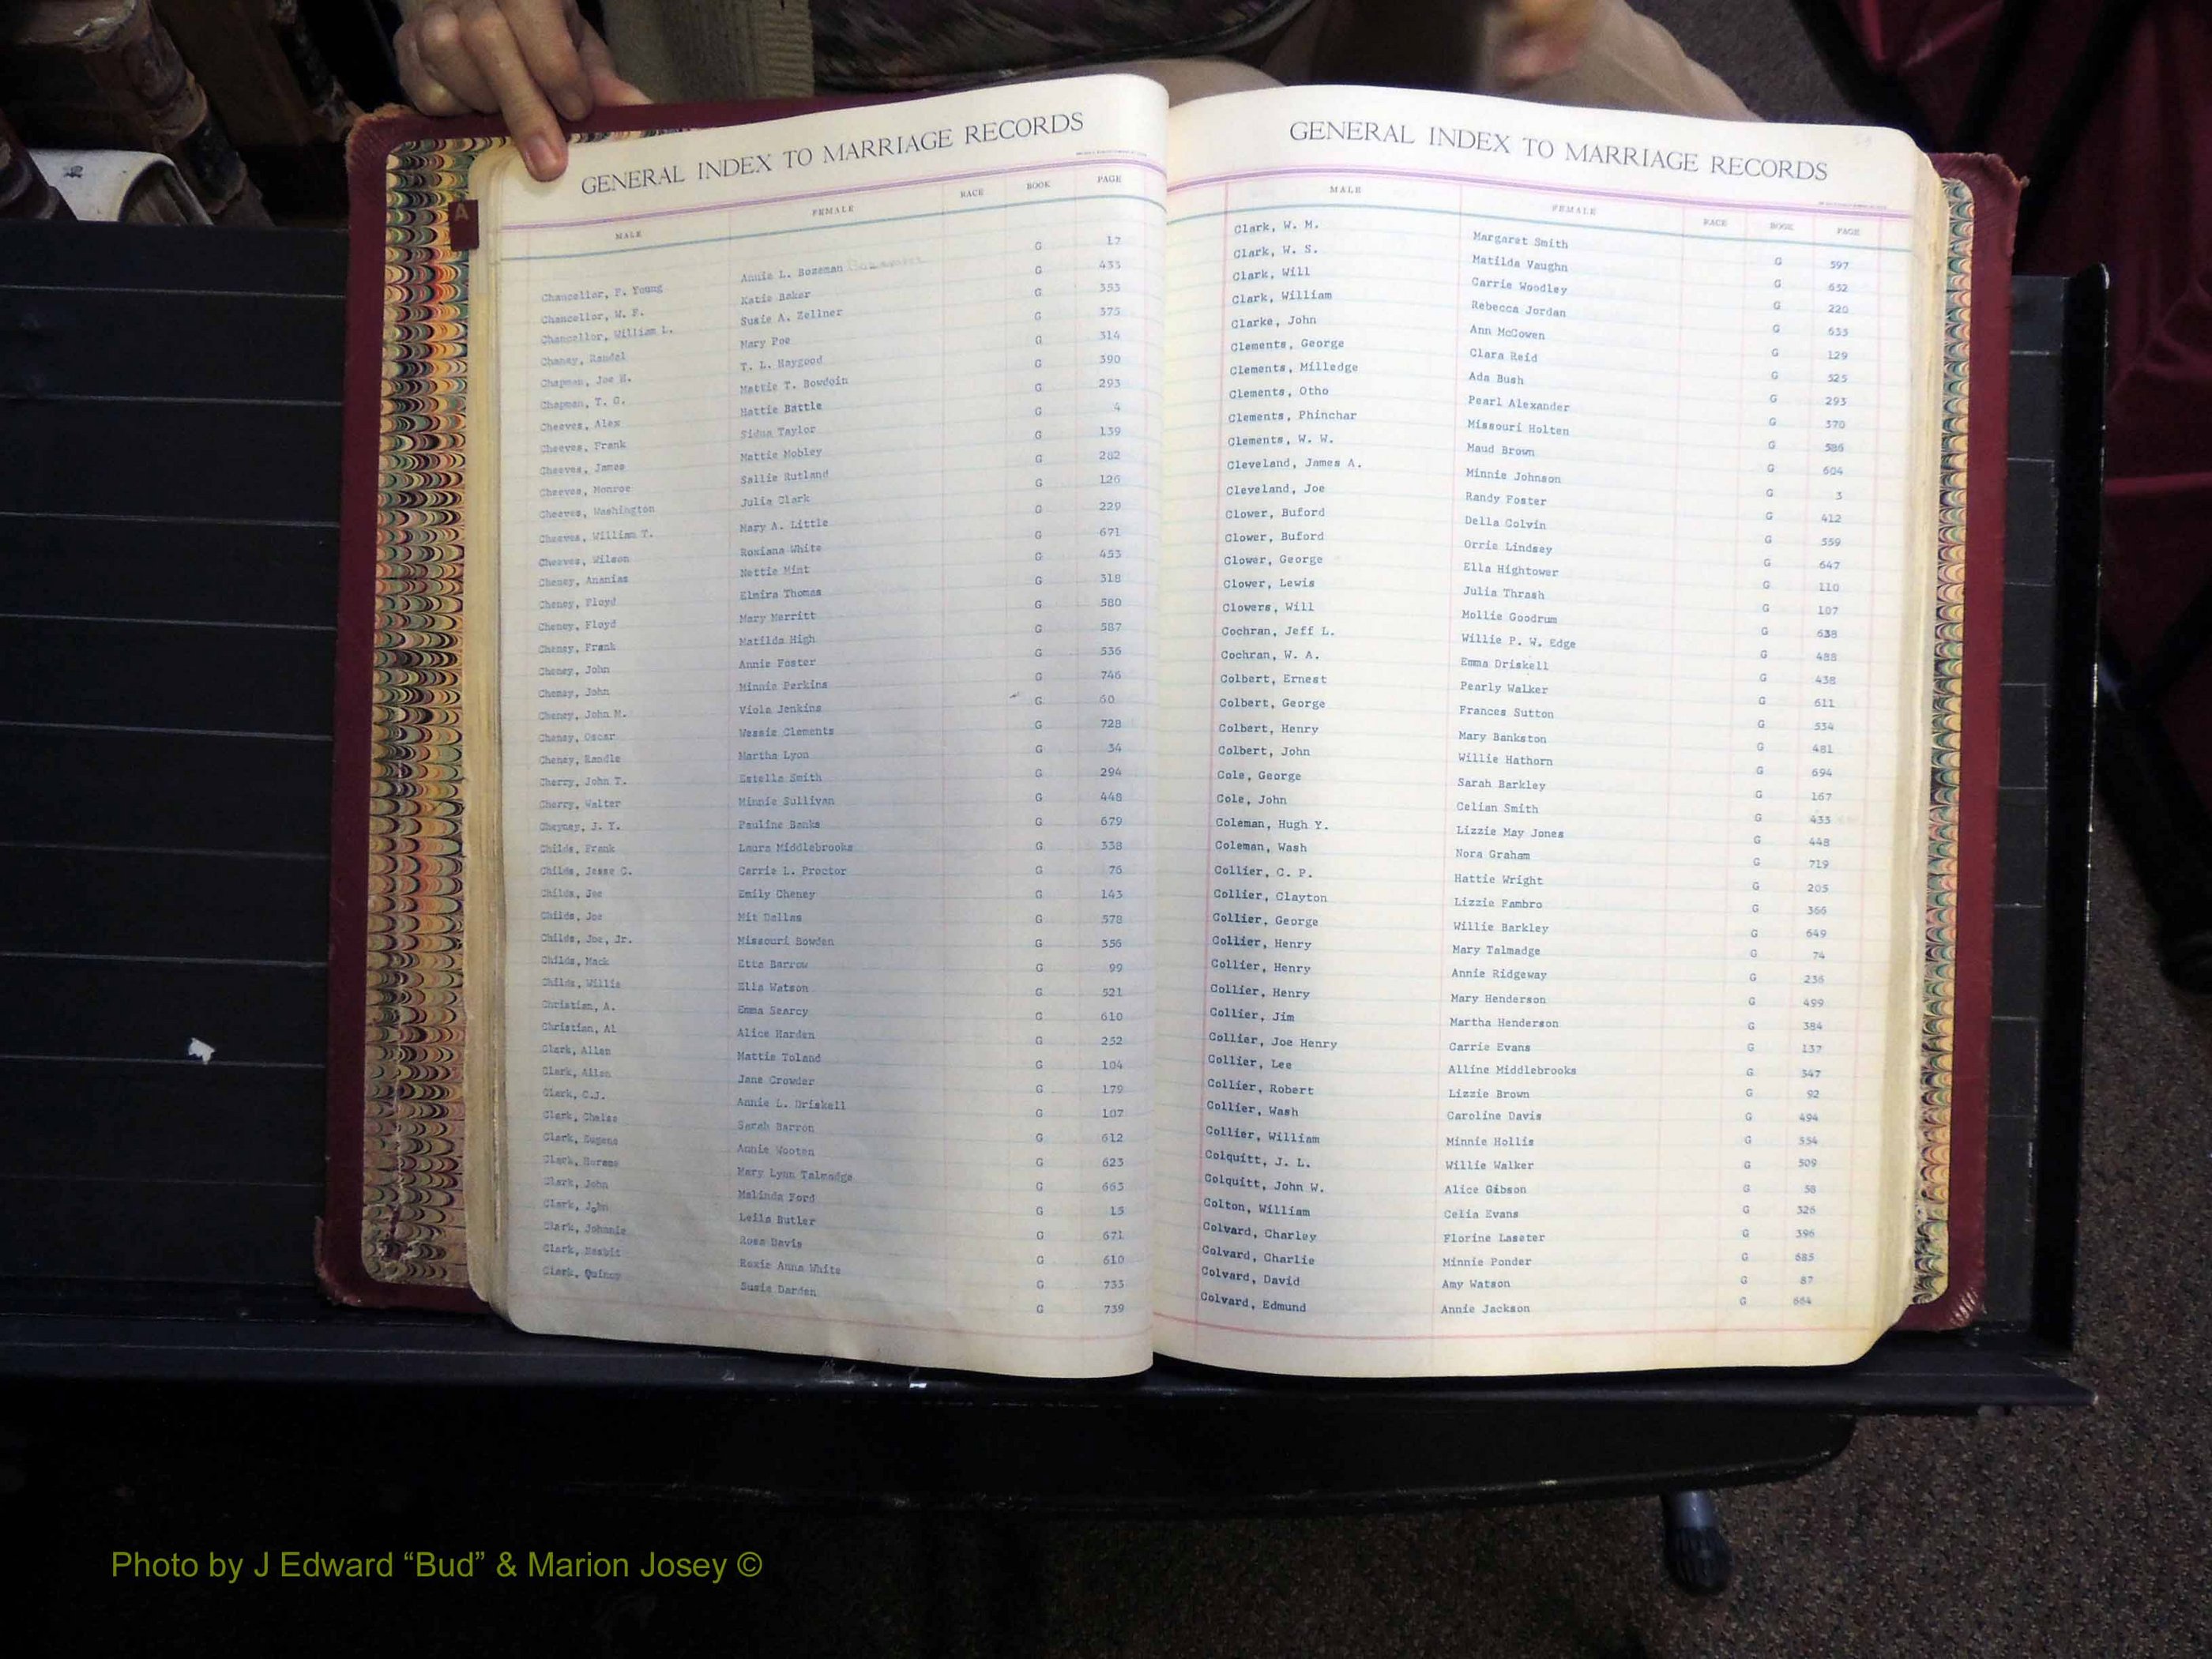 GENERAL INDEX TO MARRIAGE RECORDS
MALE FEMALE RACE BOOK PAGE
Chancellor, F. Young Annie L. Bozeman Bozeman G 17
Chancellor, W. F. Katie Baker G 433
Chancellor, William L. Susie A. Zellner G 353
Chaney, Randal Mary Poe G 375
Chapman, Joe H. T. L. Haygood G 314
Chapman, T. G. Mattie T. Bowdoin G 390
Cheeves, Alex Hattie Battle G 293
Cheeves, Frank Sidua Taylor G 4
Cheeves, James Mattie Mobley G 139
Cheeves, Monroe Sallie Rutland G 282
Cheeves, Washington Julia Clark G 126
Cheeves, William T. Mary A. Little G 229
Cheeves, Wilson Roxiana White G 671
Cheney, Ananias Nettie Mint G 453
Cheney, Floyd Elmira Thomas G 318
Cheney, Floyd Mary Merritt G 580
Cheney, Frank Matilda High G 587
Cheney, John Annie Foster G 536
Cheney, John Minnie Perkins G 746
Cheney, John M. Viola Jenkins G 60
Cheney, Oscar Wessie Clements G 728
Cheney, Randle Martha Lyon G 34
Cherry, John T. Estella Smith G 294
Cherry, Walter Minnie Sullivan G 448
Cheyney, J. Y. Pauline Banks G 679
Childs, Frank Laura Middlebrooks G 338
Childs, Jesse C. Carrie L. Proctor G 76
Childs, Joe Emily Cheney G 143
Childs, Joe Mit Dallas G 578
Childs, Joe, Jr. Missouri Bowden G 356
Childs, Mack Etta Barrow G 99
Childs, Willis Ella Watson G 521
Christian, A. Emma Searcy G 610
Christian, Al Alice Harden G 252
Clark, Allen Mattie Toland G 104
Clark, Allen Jane Crowder G 179
Clark, C.J. Annie L. Driskell G 107
Clark, Sarah Barron G 612
Clark, Eugene Annie Wooten G 623
Clark, Horace Mary Lynn Talmadge G 663
Clark, John Malinda Ford G 15
Clark, John Leila Butler G 671
Clark, Johnnie Rosa Davis G 610
Clark, Nesbit Roxie Anna White G 733
Clark, Quincy Susie Darden G 739
GENERAL INDEX TO MARRIAGE RECORDS
MALE FEMALE RACE BOOK PAGE
Clark, W. M. Margaret Smith G 597
Clark, W. S. Matilda Vaughn G 652
Clark, Will Carrie Woodley G 220
Clark, William Rebecca Jordan G 633
Clarke, John Ann McCowen G 129
Clements, George Clara Reid G 525
Clements, Milledge Ada Bush G 293
Clements, Otho Pearl Alexander G 370
Clements, Phinchar Missouri Holten G 586
Clements, W. W. Maud Brown G 604
Cleveland, James A. Minnie Johnson G 3
Cleveland, Joe Randy Foster G 412
Clower, Buford Della Colvin G 559
Clower, Buford Orrie Lindsey G 647
Clower, George Ella Hightower G 110
Clower, Lewis Julia Thrash G 107
Clowers, Will Mollie Goodrum G 638
Cochran, Jeff L. Willie P. W. Edge G 488
Cochran, W. A. Emma Driskell G 438
Colbert, Ernest Pearly Walker G 611
Colbert, George Frances Sutton G 534
Colbert, Henry Mary Bankston G 481
Colbert, John Willie Hathorn G 694
Cole, George Sarah Barkley G 167
Cole, John Celian Smith G 433
Coleman, Hugh Y. Lizzie May Jones G 448
Coleman, Wash Nora Graham G 719
Collier, C. P. Hattie Wright G 205
Collier, Clayton Lizzie Fambro G 366
Collier, George Willie Barkley G 649
Collier, Henry Mary Talmadge G 74
Collier, Henry Annie Ridgeway G 236
Collier, Henry Mary Henderson G 499
Collier, Jim Martha Henderson G 384
Collier, Joe Henry Carrie Evans G 137
Collier, Lee Alline Middlebrooks G 347
Collier, Robert Lizzie Brown G 92
Collier, Wash Caroline Davis G 494
Collier, William Minnie Hollis G 354
Colquitt, J. L. Willie Walker G 509
Colquitt, John W. Alice Gibson G 58
Colton, William Celia Evans G 326
Colvard, Charley Florine Laseter G 396
Colvard, Charlie Minnie Ponder G 685
Colvard, David Amy Watson G 87
Colvard, Edmund Annie Jackson G 664
A
Photo by J Edward “Bud” & Marion Josey ©